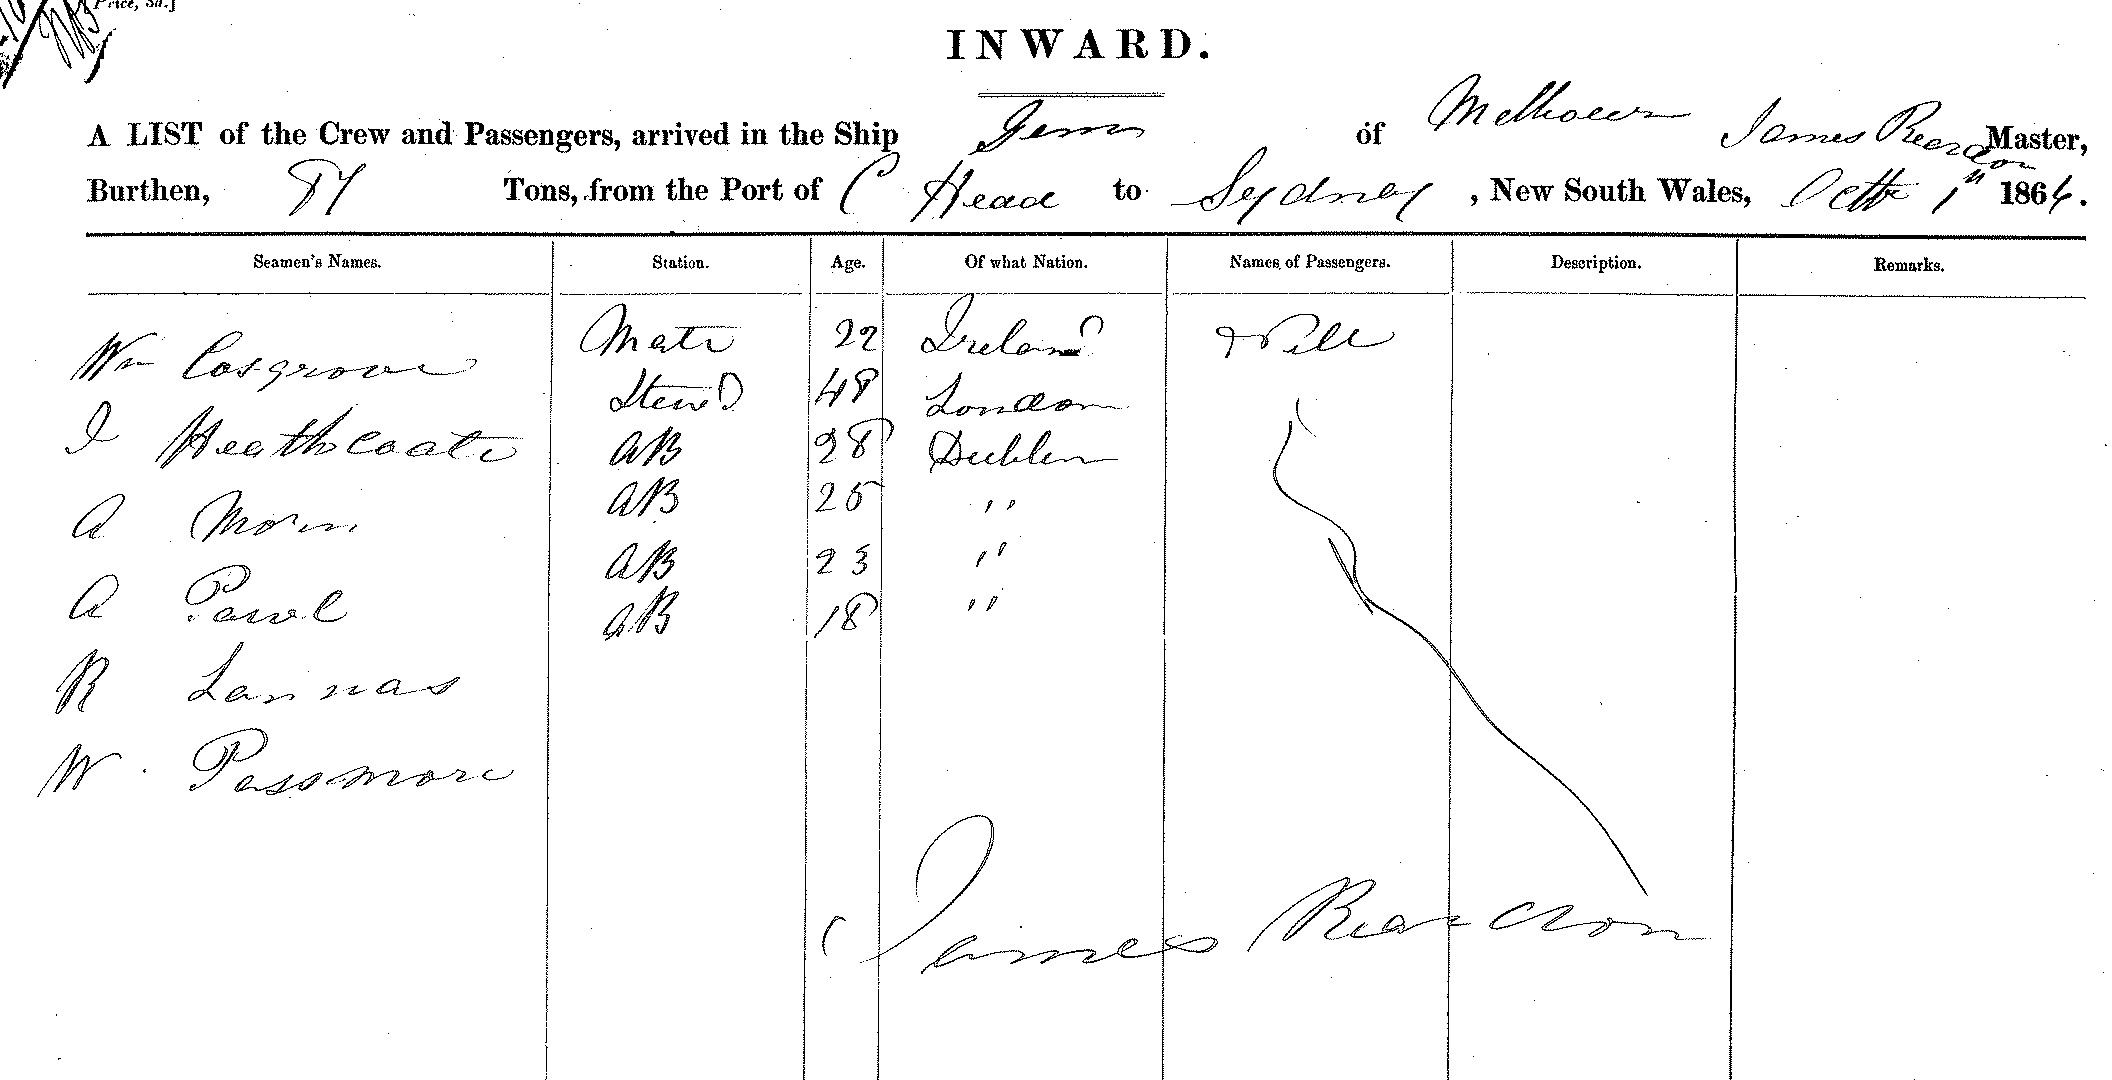 Price, 3d.]
INWARD.
A LIST of the Crew and Passengers, arrived in the Ship Gem of Melbourn James Reardon Master,
Burthen, Tons, from the Port of C Head to Sydney, New South Wales, Octbr 1st 1864.
Seamen's Names. Station. Age. Of what Nation. Names of Passengers. Description. Remarks.
Wm Cosgrove Mate 22 Ireland
I Heathcoate Stewd 48 London
A Morin AB 28 Dublin
A Powel AB 25 ,,
R Lannas AB 23 ,,
W. Passmore AB 18 ,,
James Reardon